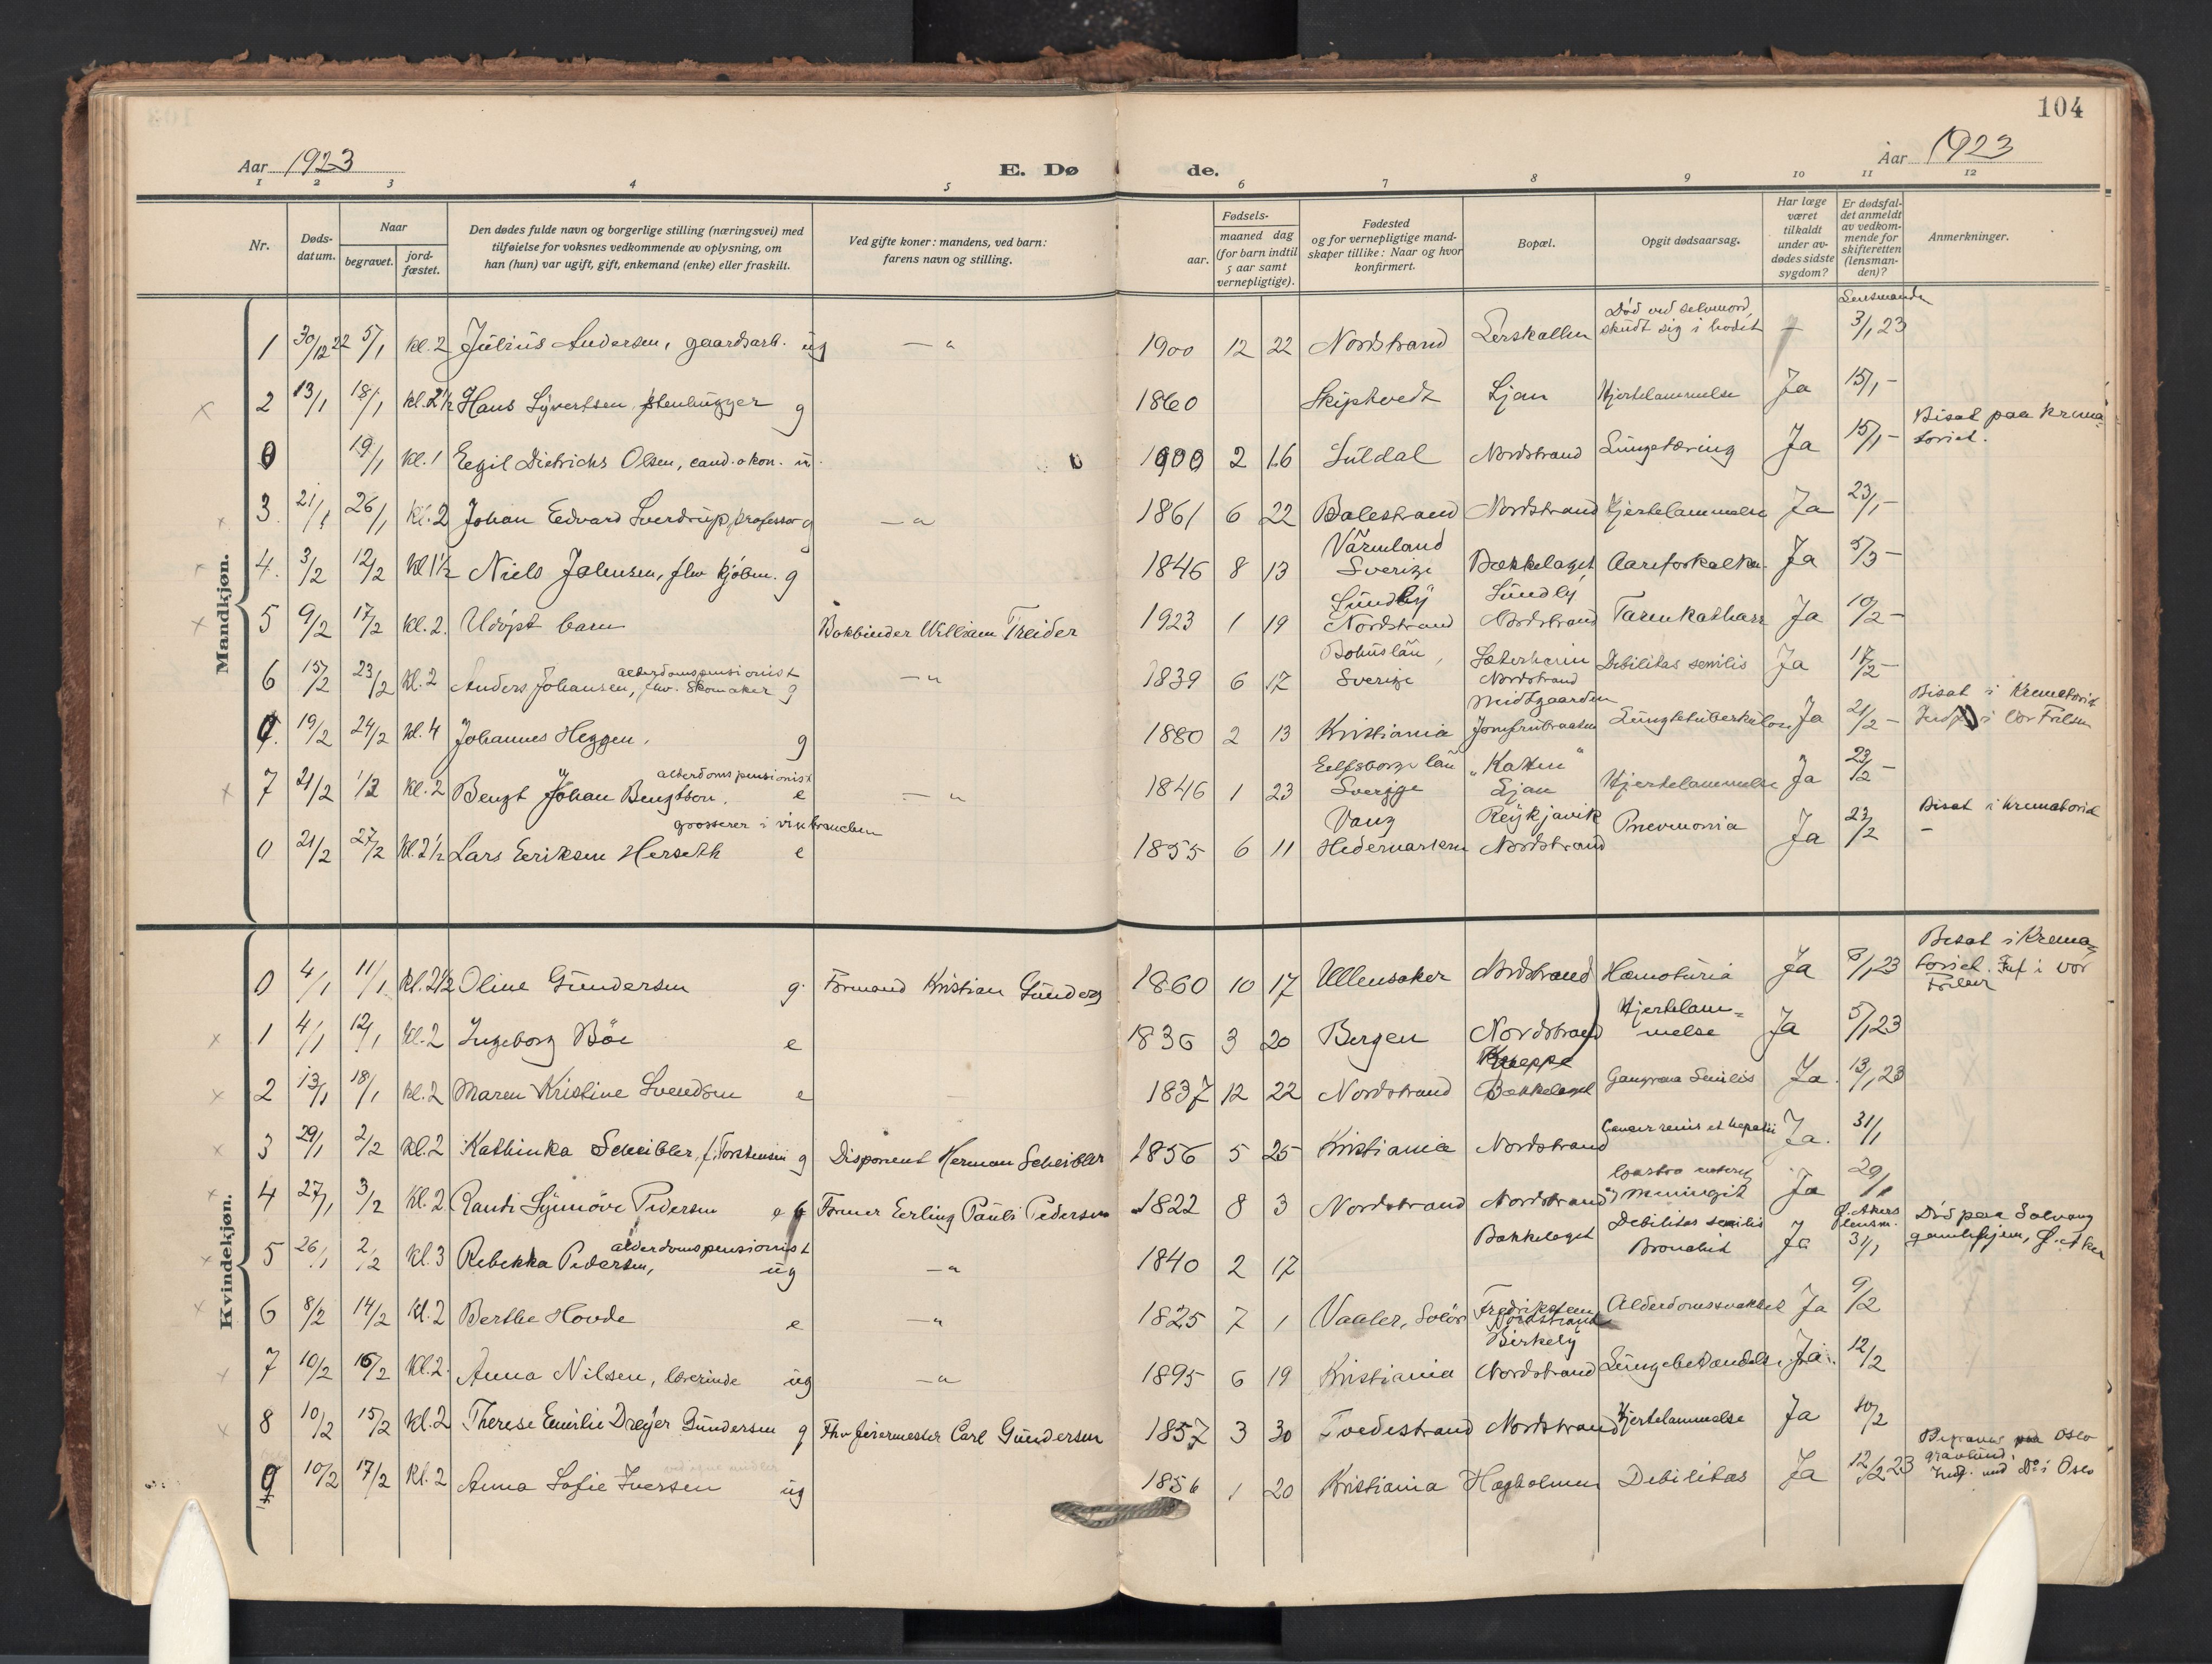 104
Aar 1923 E. Dø de. Aar 1923
1 2 3 4 5 6 7 8 9 10 11 12
Nr.
Døds-
datum.
Naar
begravet.
jord-
fæstet.
Den dødes fulde navn og borgerlige stilling (næringsvei) med
tilføielse for voksnes vedkommende av oplysning, om
han (hun) var ugift, gift, enkemand (enke) eller fraskilt.
Ved gifte koner: mandens, ved barn:
farens navn og stilling.
Fødsels-
aar.
maaned dag
(for barn indtil
5 aar samt
vernepligtige).
Fødested
og for vernepligtige mand-
skaper tillike: Naar og hvor
konfirmert.
Bopæl.
Opgit dødsaarsag.
Har læge
været
tilkaldt
under av-
dødes sidste
sygdom?
Er dødsfal-
det anmeldt
av vedkom-
mende for
skifteretten
(lensman-
den)?
Anmerkninger.
Mandkjøn.
Død ved selvmord, Lensmanden
1 30/12 22 5/1 kl. 2 Julius Andersen, gaardsarb. ug — " 1900 12 22 Nordstrand Lerskallen skudt sig i hodet — 3/1 23
2 13/1 18/1 kl. 2½ Hans Syvertsen, stenhugger g 1860 Skiptvedt Ljan Hjertelammelse Ja 15/1 —
0 19/1 kl. 1 Eegil Dietrichs Olsen, cand. økon. u. 1900 2 16 Suldal Nordstrand Lungetæring Ja 15/1 — Bisat paa krema-
toriet.
3 21/1 26/1 kl. 2 Johan Edvard Sverdrup, professor g — " 1861 6 22 Balestrand Nordstrand Hjertelammelse Ja 23/1 —
Värmland
4. 3/2 12/2 kl 1½ Niels Johnsen, fhv kjøbm. g 1846 8 13 Sverige Bækkelaget Aareforkalkn. Ja 5/3 —
Sundby Sundby
5 9/2 17/2 kl. 2. Udøpt barn Bokbinder William Treider 1923 1 19 Nordstrand Nordstrand Tarmkatharr Ja 10/2 —
alderdomspensionist Bohuslän, Sæterheim
6 15/2 23/2 kl. 2 Anders Johansen, fhv. skomaker g — " 1839 6 17 Sverige Nordstrand Debilitas senilis Ja 17/2 —
Midtgaarden
0. 19/2 24/2 kl. 4 Johannes Heggen. g 1880 2 13 Kristiania Jomfrubraaten Lungetuberkulose Ja 21/2 — Bisat i Krematoriet
i Vor Frelser
alderdomspensionist Elfsborgs län „Katten"
7 21/2 1/3 kl. 2 Bengt Johan Bengtson. e — " 1846 1 23 Sverige Ljan Hjertelammelse Ja 23/2 —
grosserer i vinbranchen Vang Reykjavik
0 21/2 27/2 kl. 2½ Lars Eeriksen Herseth e 1855 6 11 Hedemarken Nordstrand Pnevmonia Ja 23/2 Bisat i krematoriet
Kvindekjøn.
0 4/1 11/1 kl. 2½ Oline Gundersen g. Formand Kristian Gunders 1860 10 17 Ullensaker Nordstrand Hæmoturia Ja 8/1 23 Bisat i Krema-
toriet. Inf i Vor
Frelser
Hjertelam-
1 4/1 12/1 kl. 2 Ingeborg Böe e 1836 3 20 Bergen Nordstrand melse Ja 5/1 23
2 13/1 18/1 kl. 2 Maren Kristine Svendsen e 1837 12 22 Nordstrand Bækkelaget Gangrena Senilis Ja. 13/1 23
3 29/1 2/2 kl. 2 Kathinka Scheibler, f. Torstensen g Disponent Herman Scheibler 1856 5 25 Kristiania Nordstrand Cancer renis et hepatis Ja. 31/1
4 27/1 3/2 kl. 2 Randi Synnöve Pedersen Former Eerling Pauli Pedersen 1822 8 3 Nordstrand Nordstrand meningit Ja 29/1
alderdomspensionist Ø. Akers
5 26/1 2/2 kl. 3 Rebekka Pedersen, ug — " 1840 2 17 Bækkelaget Debilitas senilis Ja lensm. Død paa Solvang
Bronchit 31/1 gamlehjem, Ø. Aker
6 8/2 14/2 kl. 2 Berthe Hovde e — " 1825 7 1 Vaaler, Solör Fredriksteen Alderdomssvakhet Ja 9/2
Nordstrand
Birkely
7 10/2 16/2 kl. 2. Anna Nilsen, lærerinde ug — " 1895 6 19 Kristiania Nordstrand Ja. 12/2
8 10/2 15/2 kl. 2 Therese Emilie Dreyer Gundersen g Fhv. fyrermester Carl Gundersen 1857 3 30 Tvedestrand Nordstrand Hjertelammelse Ja 10/2
9 10/2 17/2 kl. 2 Anna Sofie Iversen ug 1856 1 20 Kristiania Hægholmen Debilitas Ja 12/2 23 Begraves Oslo
gravlund.
i Oslo